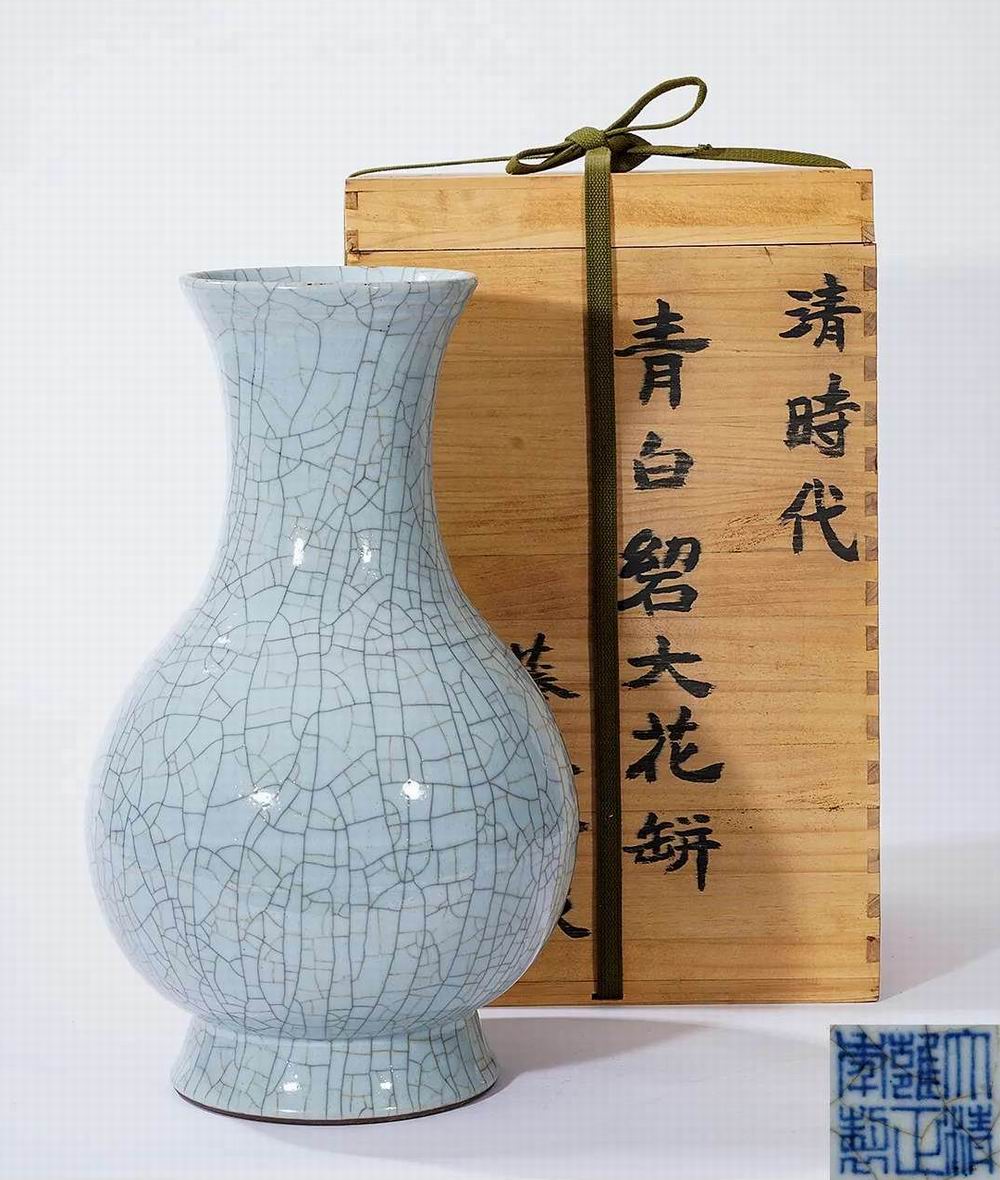 清時代
青白大花缾
大清
雍正
年製